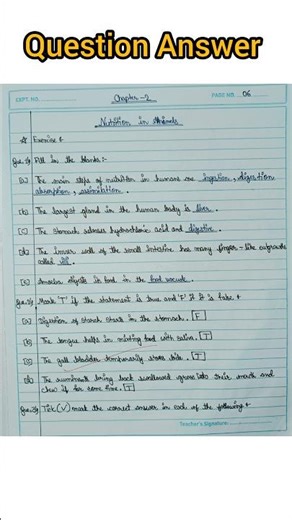 Question Answer
EXPT. NO.
PAGE NO. 06
Chapter - 2
Nutrition in Animals
Exercise
Que.1) Fill in the blanks :-
(a) The main steps of nutrition in humans are ingestion, digestion
absorption, assimilation.
(b) The largest gland in the human body is liver.
(c) The stomach releases hydrochloric acid and digestive.
(d) The inner wall of the small intestine has many finger-like outgrowths
called villi.
(e) Amoeba digests its food in the food vacuole.
Que.2) Mark 'T' if the statement is true and 'F' if it is false
(a) Digestion of starch starts in the stomach. [F]
(b) The tongue helps in mixing food with saliva. [T]
(c) The gall bladder temporarily stores bile. [T]
(d) The ruminants bring back swallowed grass into their mouth and
chew it for some time. [T]
Que.3) Tick (√) mark the correct answer in each of the following
Teacher's Signature